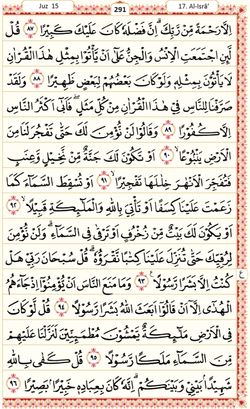 Juz 15
291
17. Al-Isrâ'
اِلَّا رَحْمَةً مِّنْ رَّبِّكَ ۗ اِنَّ فَضْلَهٗ كَانَ عَلَيْكَ كَبِيْرًا ٨٧ قُلْ
لَّىِٕنِ اجْتَمَعَتِ الْاِنْسُ وَالْجِنُّ عَلٰٓى اَنْ يَّأْتُوْا بِمِثْلِ هٰذَا الْقُرْاٰنِ
لَا يَأْتُوْنَ بِمِثْلِهٖ وَلَوْ كَانَ بَعْضُهُمْ لِبَعْضٍ ظَهِيْرًا ٨٨ وَلَقَدْ
صَرَّفْنَا لِلنَّاسِ فِيْ هٰذَا الْقُرْاٰنِ مِنْ كُلِّ مَثَلٍ ۖ فَاَبٰىٓ اَكْثَرُ النَّاسِ
اِلَّا كُفُوْرًا ٨٩ وَقَالُوْا لَنْ نُّؤْمِنَ لَكَ حَتّٰى تَفْجُرَ لَنَا مِنَ
الْاَرْضِ يَنْۢبُوْعًا ٩٠ اَوْ تَكُوْنَ لَكَ جَنَّةٌ مِّنْ نَّخِيْلٍ وَّعِنَبٍ
فَتُفَجِّرَ الْاَنْهٰرَ خِلٰلَهَا تَفْجِيْرًا ٩١ اَوْ تُسْقِطَ السَّمَاۤءَ كَمَا
زَعَمْتَ عَلَيْنَا كِسَفًا اَوْ تَأْتِيَ بِاللّٰهِ وَالْمَلٰۤىِٕكَةِ قَبِيْلًا ٩٢
اَوْ يَكُوْنَ لَكَ بَيْتٌ مِّنْ زُخْرُفٍ اَوْ تَرْقٰى فِى السَّمَاۤءِ ۗ وَلَنْ نُّؤْمِنَ
لِرُقِيِّكَ حَتّٰى تُنَزِّلَ عَلَيْنَا كِتٰبًا نَّقْرَؤُهٗ ۗ قُلْ سُبْحَانَ رَبِّيْ هَلْ
كُنْتُ اِلَّا بَشَرًا رَّسُوْلًا ٩٣ وَمَا مَنَعَ النَّاسَ اَنْ يُّؤْمِنُوْٓا اِذْ جَاۤءَهُمُ
الْهُدٰٓى اِلَّآ اَنْ قَالُوْٓا اَبَعَثَ اللّٰهُ بَشَرًا رَّسُوْلًا ٩٤ قُلْ لَّوْ كَانَ
فِى الْاَرْضِ مَلٰۤىِٕكَةٌ يَّمْشُوْنَ مُطْمَىِٕنِّيْنَ لَنَزَّلْنَا عَلَيْهِمْ
مِّنَ السَّمَاۤءِ مَلَكًا رَّسُوْلًا ٩٥ قُلْ كَفٰى بِاللّٰهِ
شَهِيْدًاۢ بَيْنِيْ وَبَيْنَكُمْ ۗ اِنَّهٗ كَانَ بِعِبَادِهٖ خَبِيْرًاۢ بَصِيْرًا ٩٦